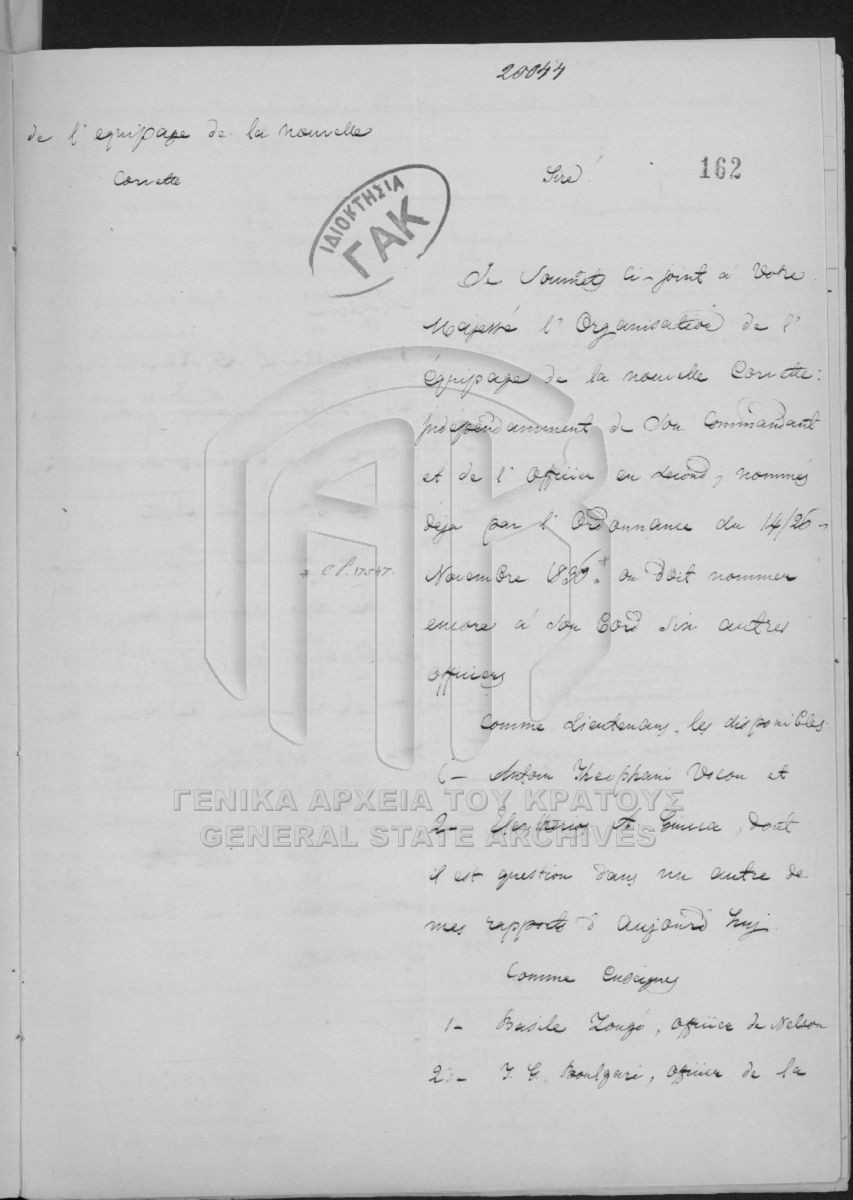 20044
de l' equipage de la nouvelle
Corvette
Sire!
162
ΙΔΙΟΚΤΗΣΙΑ
ΓΑΚ
Je Soumets Ci-joint à Votre
Majesté l' Organisation de l'
Équipage de la nouvelle Corvette:
Independamment de Son Commandant
et de l' Officier en second, nommés
déja par l' Ordonnance du 14/26
Novembre *, on doit nommer
* 17547.
encore à Son Bord Six autres
officiers
Comme Lieutenans, les disponibles
1- Antoin Theophani Vocou et
2- A Ginica, dont
il est question dans un autre de
mes rapports d' aujourd'huj.
Comme Enseignes
1- Basile Zougé, officier de Nelson
2- J. G. Boulgari, officier de la
ΓΕΝΙΚΑ ΑΡΧΕΙΑ ΤΟΥ ΚΡΑΤΟΥΣ
GENERAL STATE ARCHIVES